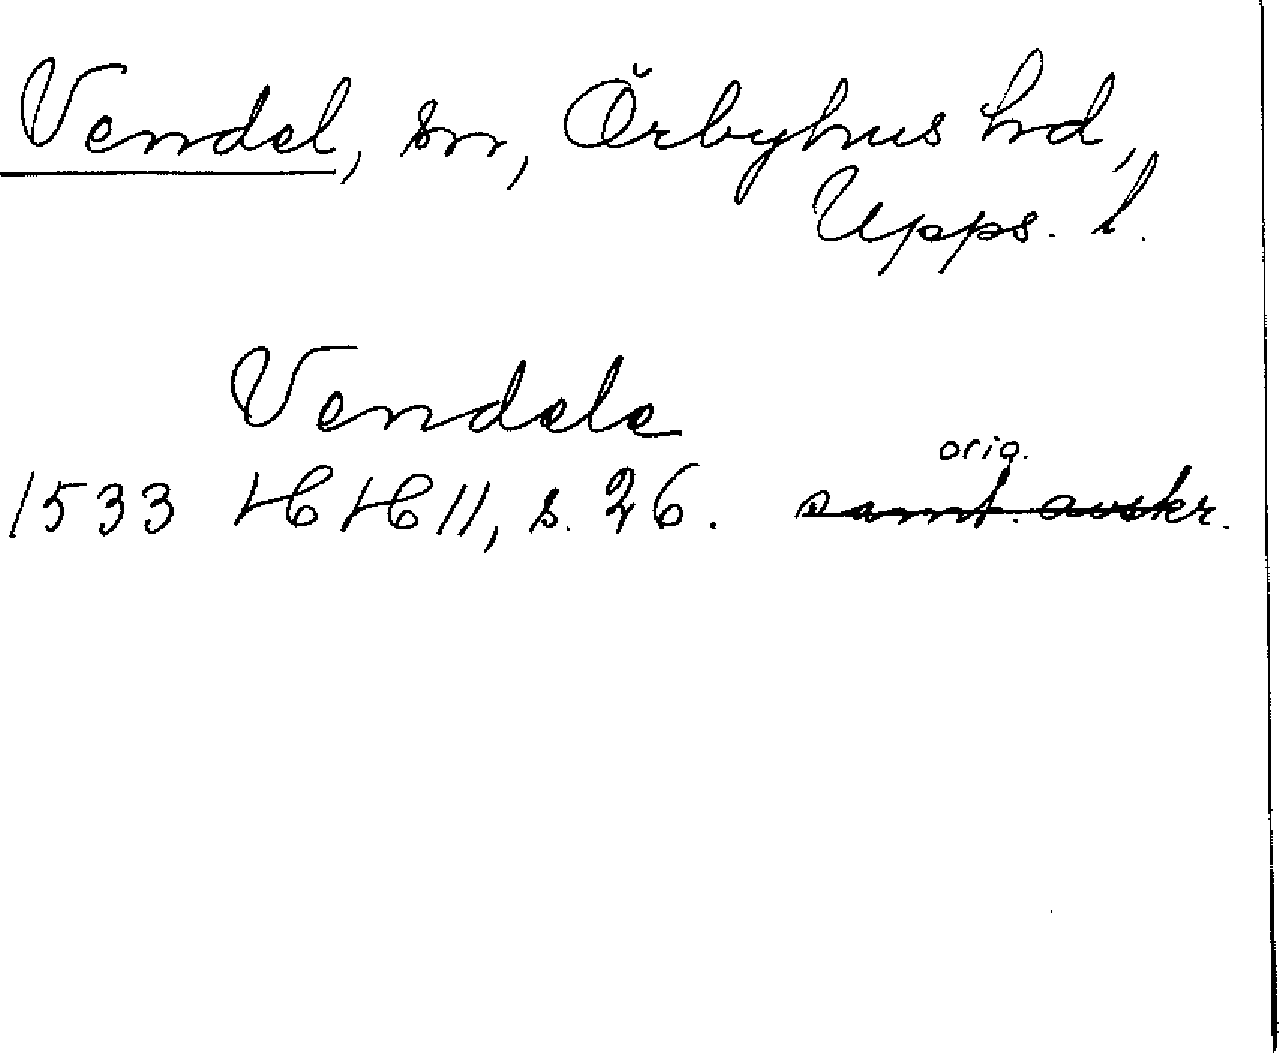 Vendel, sn, Örbyhus hd,
Upps. l.
Vendele
orig.
1533 HH 11, s. 26. samt. avskr.